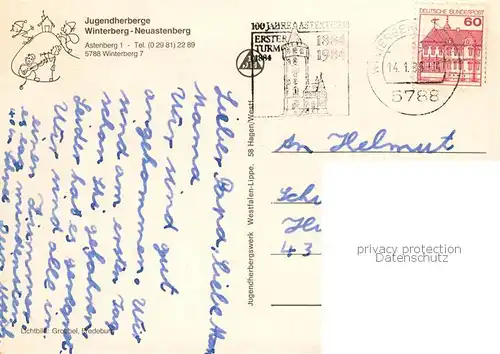 Jugendherberge
Winterberg - Neuastenberg
Astenberg 1 - Tel. (0 29 81) 22 89
5788 Winterberg 7
100 JAHRE ASTENTURM
ERSTER
TURM
1884
1884
1984
60
DEUTSCHE BUNDESPOST
14.1.86
5788
Lieber Papa, Liebe
Mama
Wir sind gut
angekommen. Wir
sind am ersten Tag
schon Ski gefahren.
Leider hat es geregnet
Wir sind alle in
einem Zimmer
Lichtbild: Grobbel, Fredeburg
Jugendherbergswerk Westfalen-Lippe, 58 Hagen/Westf.
An Helmut
Sch
43
privacy protection
DATENSCHUTZ